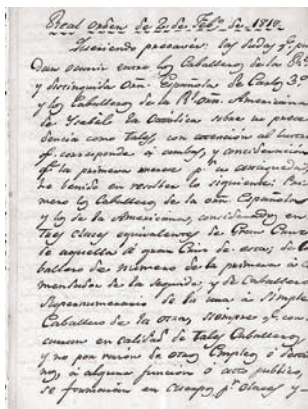 Real orden de 2 de Feb.º de 1819.
Queriendo precaver las dudas q. pu
dan ocurrir entre los Caballeros de la
y distinguida Orn. Española de Carlos 3.º
y los Caballeros de la Rl. orn. Americana
de Ysabel la Católica sobre su prece
dencia como tales, con atencion al lustre
q. corresponde á ambas, y consideracion
q. la primera merece p.r su antiguedad,
he venido en resolver lo siguiente: Pri
mero los Caballeros de la orn. Española
y los de la Americana, considerados en
tres clases equivalentes de Gran Cruz
de aquella á gran Cruz de esta; de Ca
ballero de número de la primera á Co
mendador de la segunda, y de Caballero
Supernumerario de la una á simple
Caballero de la otra, siempre q. con
curran en calidad de tales Caballeros
y no por razon de otro Empleo ó desti
no, á alguna funcion ó acto publico,
se formarán en cuerpo, p.r clases y